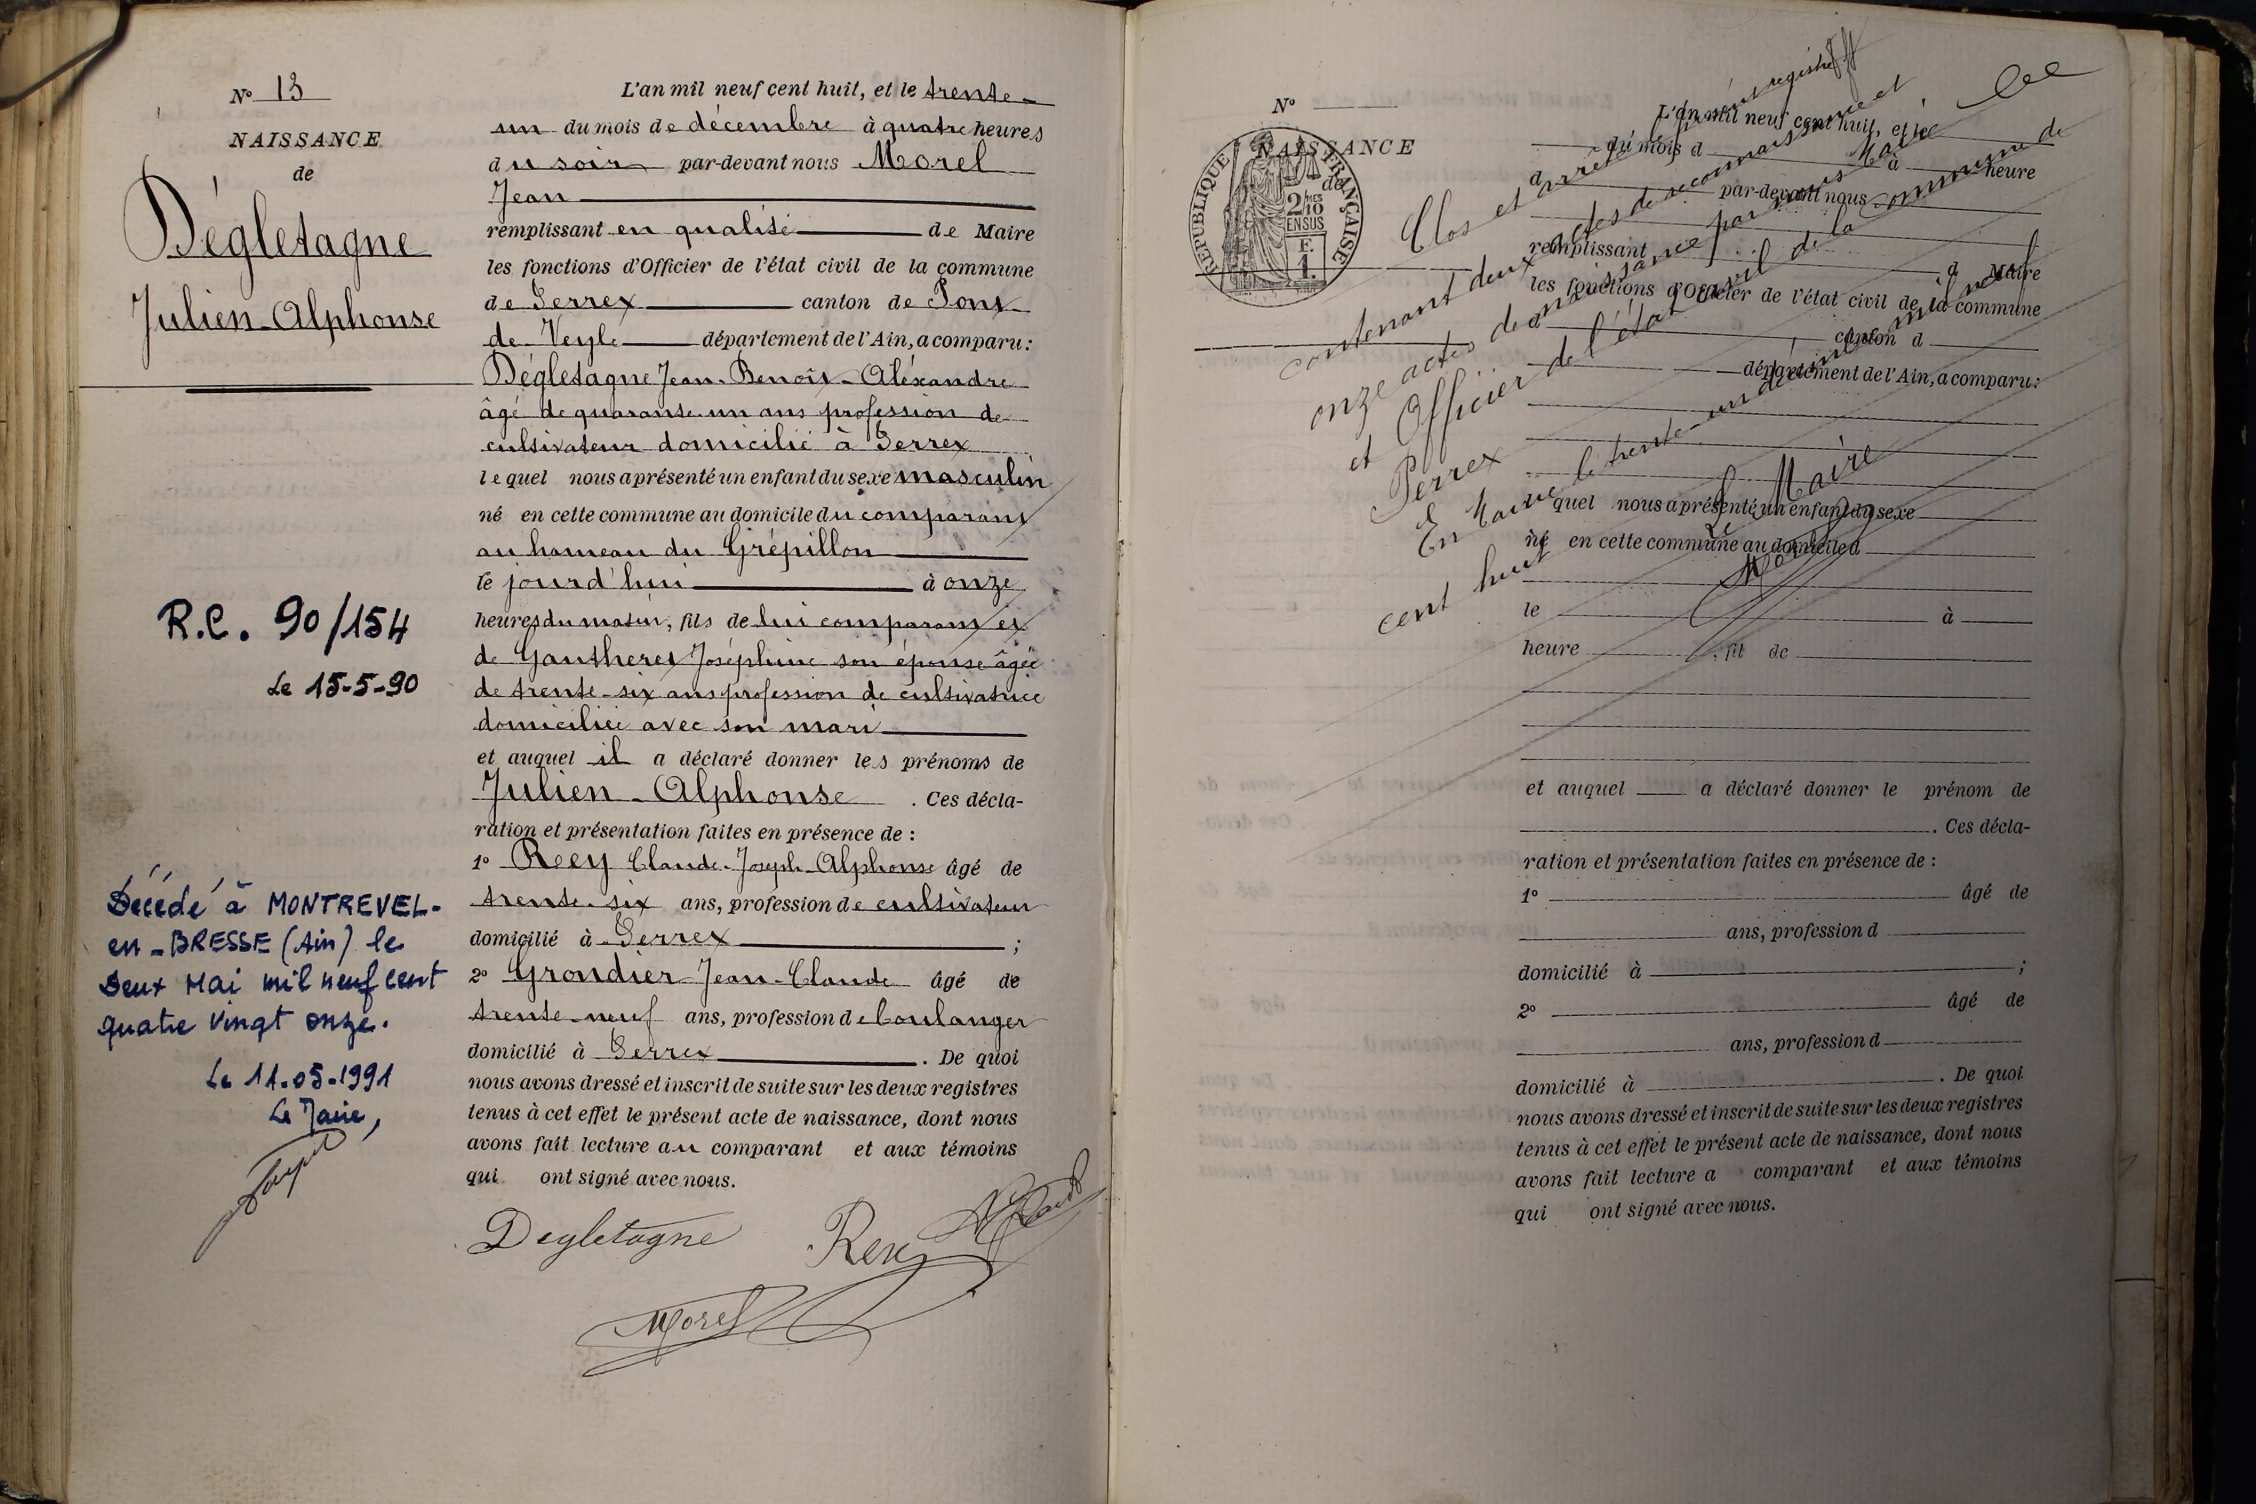 N° 13
NAISSANCE
de
Dégletagne
Julien-Alphonse
R.C. 90/154
Le 15-5-90
Décédé à MONTREVEL-
en-BRESSE (Ain) le
Deux Mai mil neuf cent
quatre vingt onze.
Le 11.05.1991
Le Maire,
L'an mil neuf cent huit, et le trente-
un du mois de décembre à quatre heures
du soir par-devant nous Morel
Jean
remplissant en qualité de Maire
les fonctions d'Officier de l'état civil de la commune
de Perrex canton de Pont
de Veyle département de l'Ain, a comparu:
Dégletagne Jean-Benoît-Aléxandre
âgé de quarante-un ans profession de
cultivateur domicilié à Perrex
lequel nous a présenté un enfant du sexe masculin
né en cette commune au domicile du comparant
au hameau du Grépillon
le jourd'hui à onze
heures du matin, fils de lui comparant et
de Gautheret Joséphine son épouse âgée
de trente-six ans profession de cultivatrice
domiciliée avec son mari
et auquel il a déclaré donner les prénoms de
Julien-Alphonse. Ces décla-
ration et présentation faites en présence de :
1° Rey Claude-Joseph-Alphonse âgé de
trente-six ans, profession de cultivateur
domicilié à Perrex ;
2° Grondier Jean-Claude âgé de
trente-neuf ans, profession de boulanger
domicilié à Perrex. De quoi
nous avons dressé et inscrit de suite sur les deux registres
tenus à cet effet le présent acte de naissance, dont nous
avons fait lecture au comparant et aux témoins
qui ont signé avec nous.
Degletagne Rey
Morel
N°
NAISSANCE
de
REPUBLIQUE FRANÇAISE
2/10
EN SUS
F.
1.
L'an mil neuf cent huit, et le
du mois d à heure
d par-devant nous
remplissant d Maire
les fonctions d'Officier de l'état civil de la commune
d canton d
département de l'Ain, a comparu:
quel nous a présenté un enfant du sexe
né en cette commune au domicile d
le à
heure , fil de
et auquel a déclaré donner le prénom de
. Ces décla-
ration et présentation faites en présence de :
1° âgé de
ans, profession d
domicilié à ;
2° âgé de
ans, profession d
domicilié à . De quoi
nous avons dressé et inscrit de suite sur les deux registres
tenus à cet effet le présent acte de naissance, dont nous
avons fait lecture a comparant et aux témoins
qui ont signé avec nous.
Clos et arrêté le présent registre
contenant deux actes de reconnaissance et
onze actes de naissance par nous Maire
et Officier de l'état civil de la commune de
Perrex
En Mairie le trente-un décembre mil neuf
cent huit
Le Maire
Morel